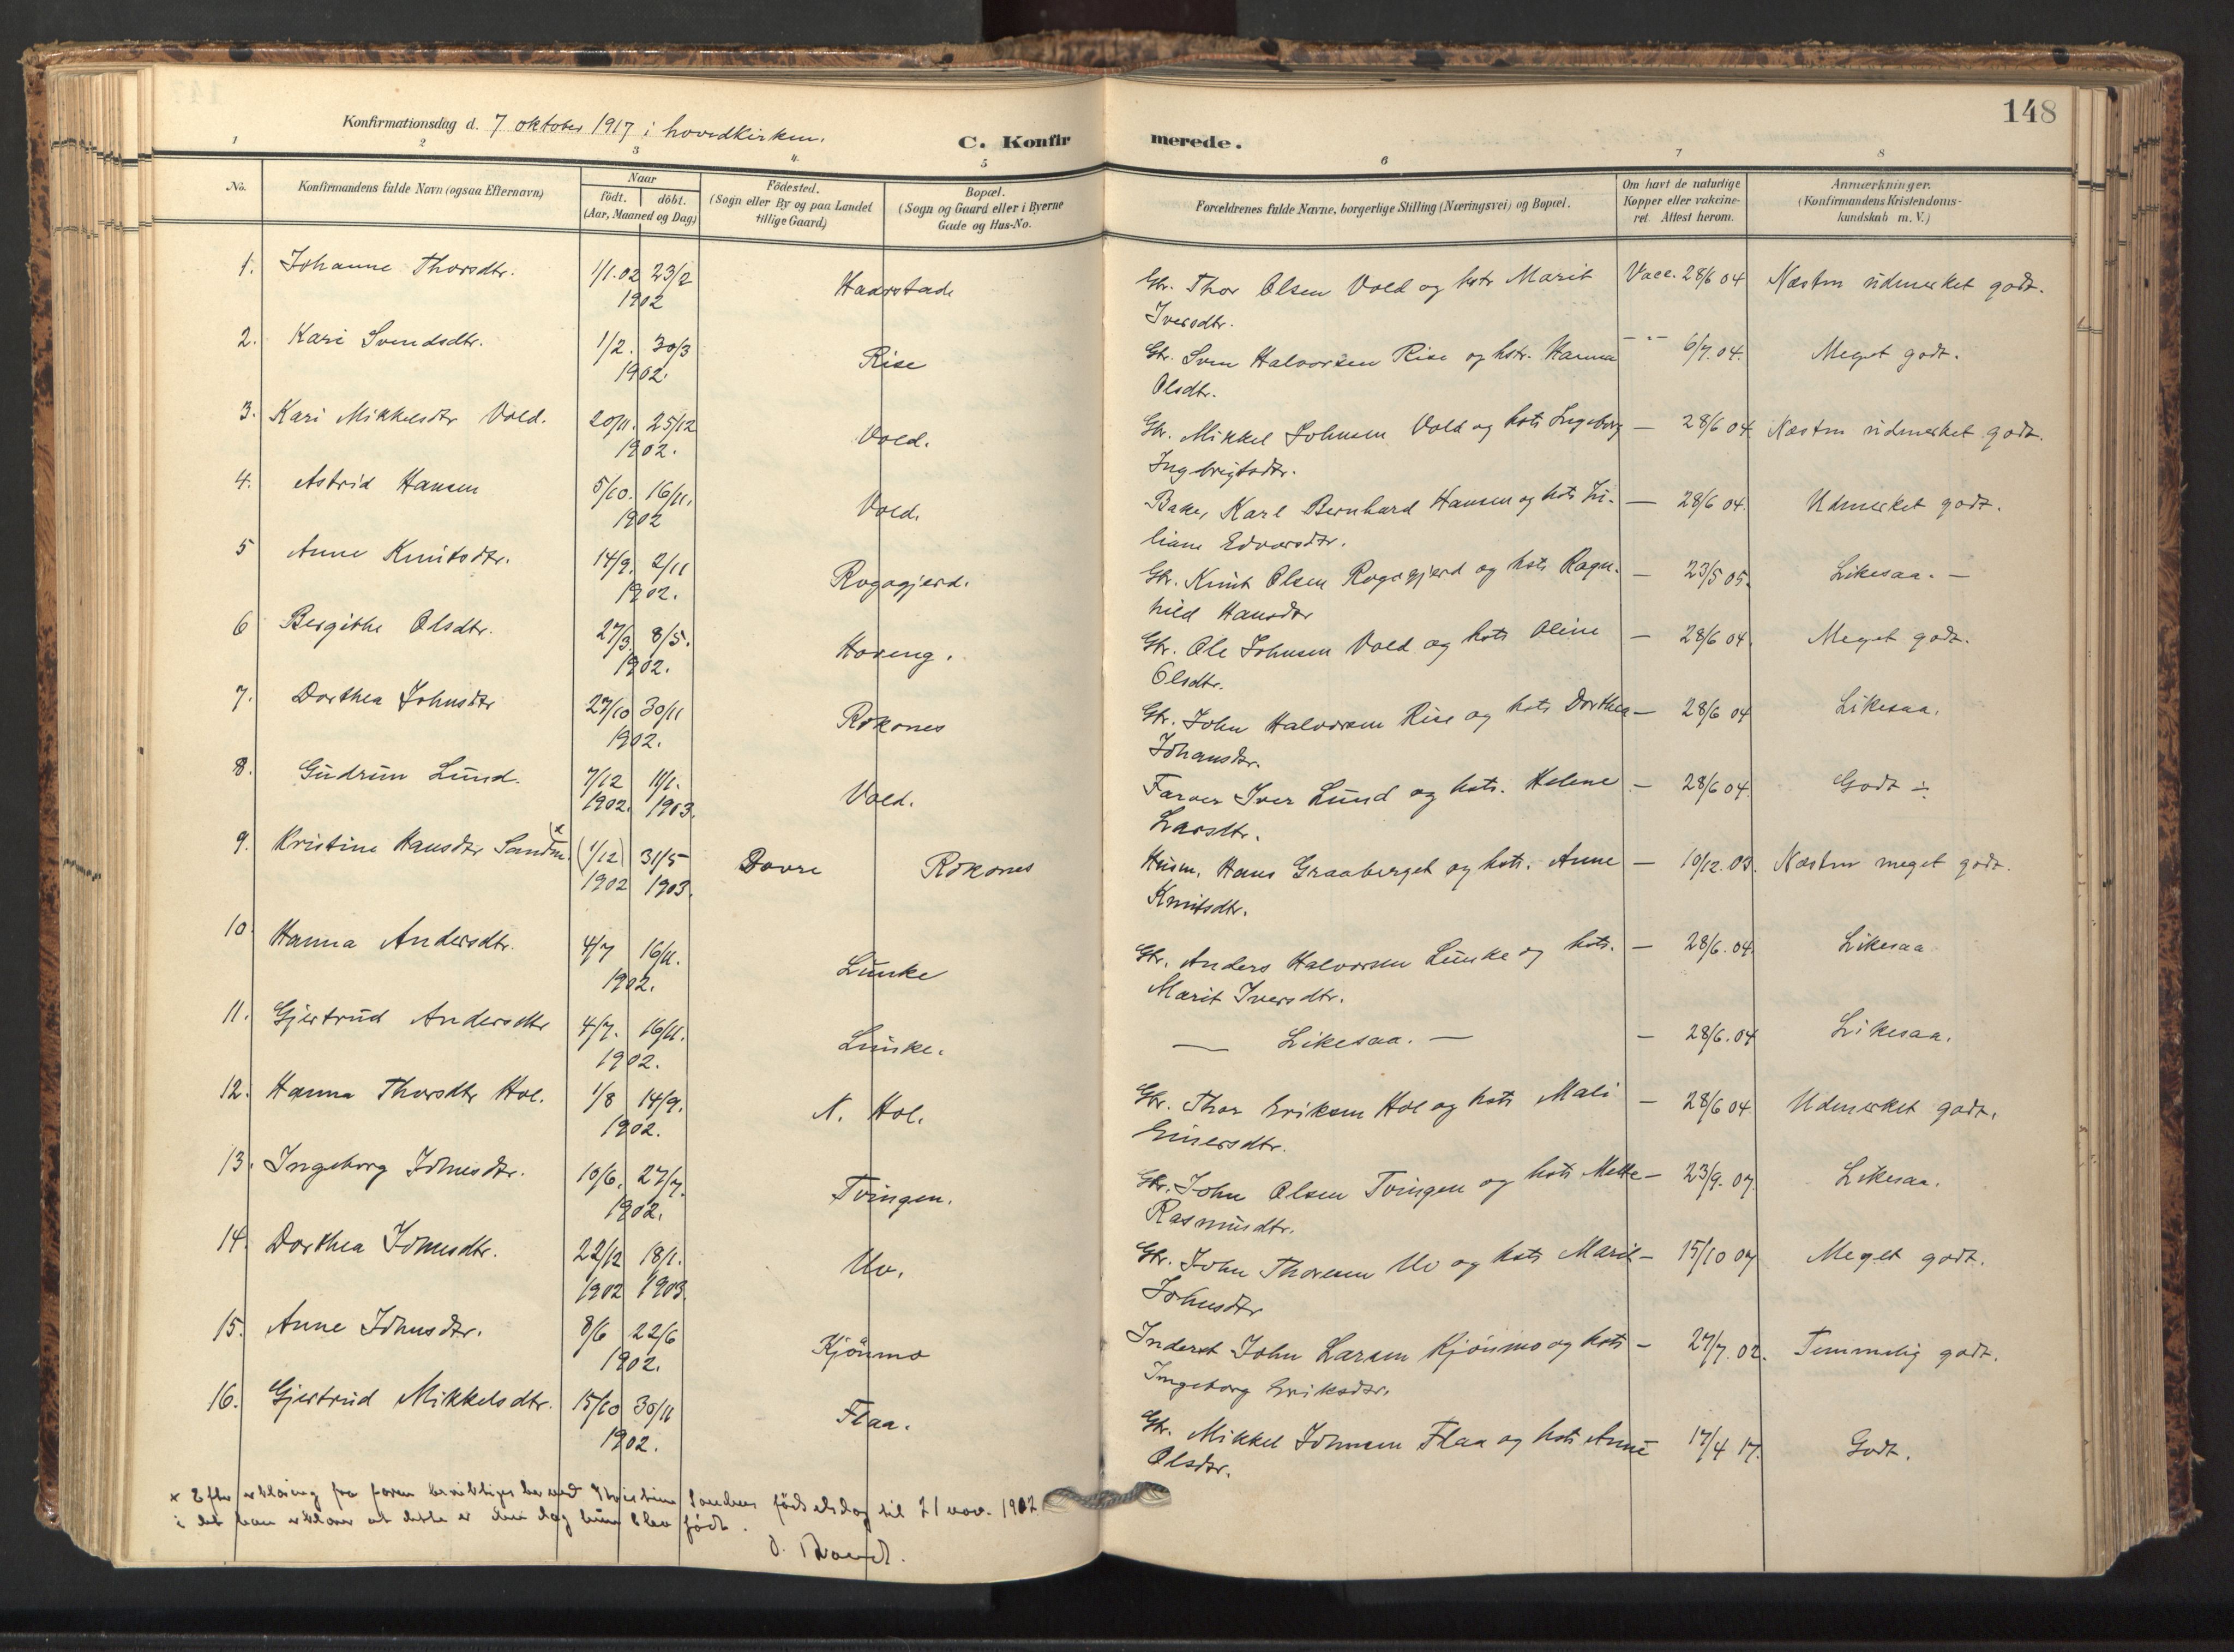 148
Konfirmationsdag d. 7 oktober 1917 i hovedkirken.
C. Konfir merede.
1 2 3 4. 5 6 7 8
No.
Konfirmandens fulde Navn (ogsaa Efternavn)
Naar
födt. döbt.
(Aar, Maaned og Dag)
Födested.
(Sogn eller By og paa Landet
tillige Gaard)
Bopæl.
(Sogn og Gaard eller i Byerne
Gade og Hus-No.
Forældrenes fulde Navne, borgerlige Stilling (Næringsvei) og Bopæl.
Om havt de naturlige
Kopper eller vakcine-
ret. Attest herom.
Anmærkninger.
(Konfirmandens Kristendoms-
kundskab m. V.)
1. Johanne Thorsdtr. 1/1.02 23/2 Haarstad Gbr. Thor Olsen Vold og hstr Marit Vacc. 28/6 04 Næsten udmerket godt.
1902 Iversdtr.
2. Kari Svendsdtr. 1/2. 30/3 Rise Gbr. Sven Halvorsen Rise og hstr. Hanna -"- 6/7.04. Meget godt.
1902. Olsdtr.
3. Kari Mikkelsdtr Vold. 20/11. 25/12 Vold. Gbr. Mikkel Johnsen Vold og hstr Ingeborg — 28/6 04 Næsten udmerket godt.
1902. Ingebrigtsdtr.
4. Astrid Hansen 5/10. 16/11. Vold. Baker Karl Bernhard Hansen og hstr Ju- — 28/6 04. Udmerket godt.
1902 liane Edvarsdtr.
5 Anne Knutsdtr. 14/9. 2/11 Rogogjerd. Gbr. Knut Olsen Rogogjerd og hstr Ragn- — 23/5 05. Likesaa. —
1902. hild Hansdtr
6 Bergithe Olsdtr. 27/3. 8/5. Hoxeng. Gbr. Ole Johnsen Vold og hstr Oline — 28/6 04. Meget godt.
1902. Olsdtr.
7. Dorthea Johnsdtr 27/10 30/11 Rokones Gbr. John Halvorsen Rise og hstr Dorthea — 28/6 04 Likesaa.
1902. Johansdtr.
8. Gudrun Lund. 7/12 11/1. Vold. Farver Iver Lund og hstr. Helene — 28/6 04. Godt ÷
1902. 1903. Larsdtr.
9. Kristine Hansdtr Sanden. x (1/12) 31/5 Dovre Rokones Husm. Hans Graaberget og hstr. Anne — 10/12.03. Næsten meget godt.
1902 1903. Knutsdtr.
10. Hanna Andersdtr. 4/7 16/11. Lunke Gbr. Anders Halvorsen Lunke og hstr. — 28/6.04. Likesaa
1902. Marit Iversdtr.
11. Gjertrud Andersdtr 4/7. 16/11. Lunke. — Likesaa. — — 28/6.04 Likesaa.
1902.
12. Hanna Thorsdtr Hol. 1/8 14/9. N. Hol. Gbr. Thor Eriksen Hol og hstr Mali — 28/6 04. Udmerket godt.
1902. Einersdtr.
13. Ingeborg Johnsdtr. 10/6. 27/7. Tvingen. Gbr. John Olsen Tvingen og hstr Mette — 23/9.07. Likesaa.
1902. Rasmusdtr.
14. Dorthea Johnsdtr. 22/12 18/1. Uv. Gbr. John Thoresen Uv og hstr Marit — 15/10 07 Meget godt.
1902 1903. Johnsdtr
15. Anne Johnsdtr. 8/6 22/6 Kjönmo Inderst John Larsen Kjönmo og hstr — 27/7.02. Temmelig godt.
1902. Ingeborg Eriksdtr.
16. Gjertrud Mikkelsdtr. 15/10 30/11 Flaa. Gbr. Mikkel Johnsen Flaa og hstr Anne — 17/4 17. Godt.
1902. Olsdtr.
x Efter erklæring fra faren berigtiges herved Kristine Sandens födselsdag til 21 nov. 1902
i det han erklærer at dette er den dag hun blev födt.